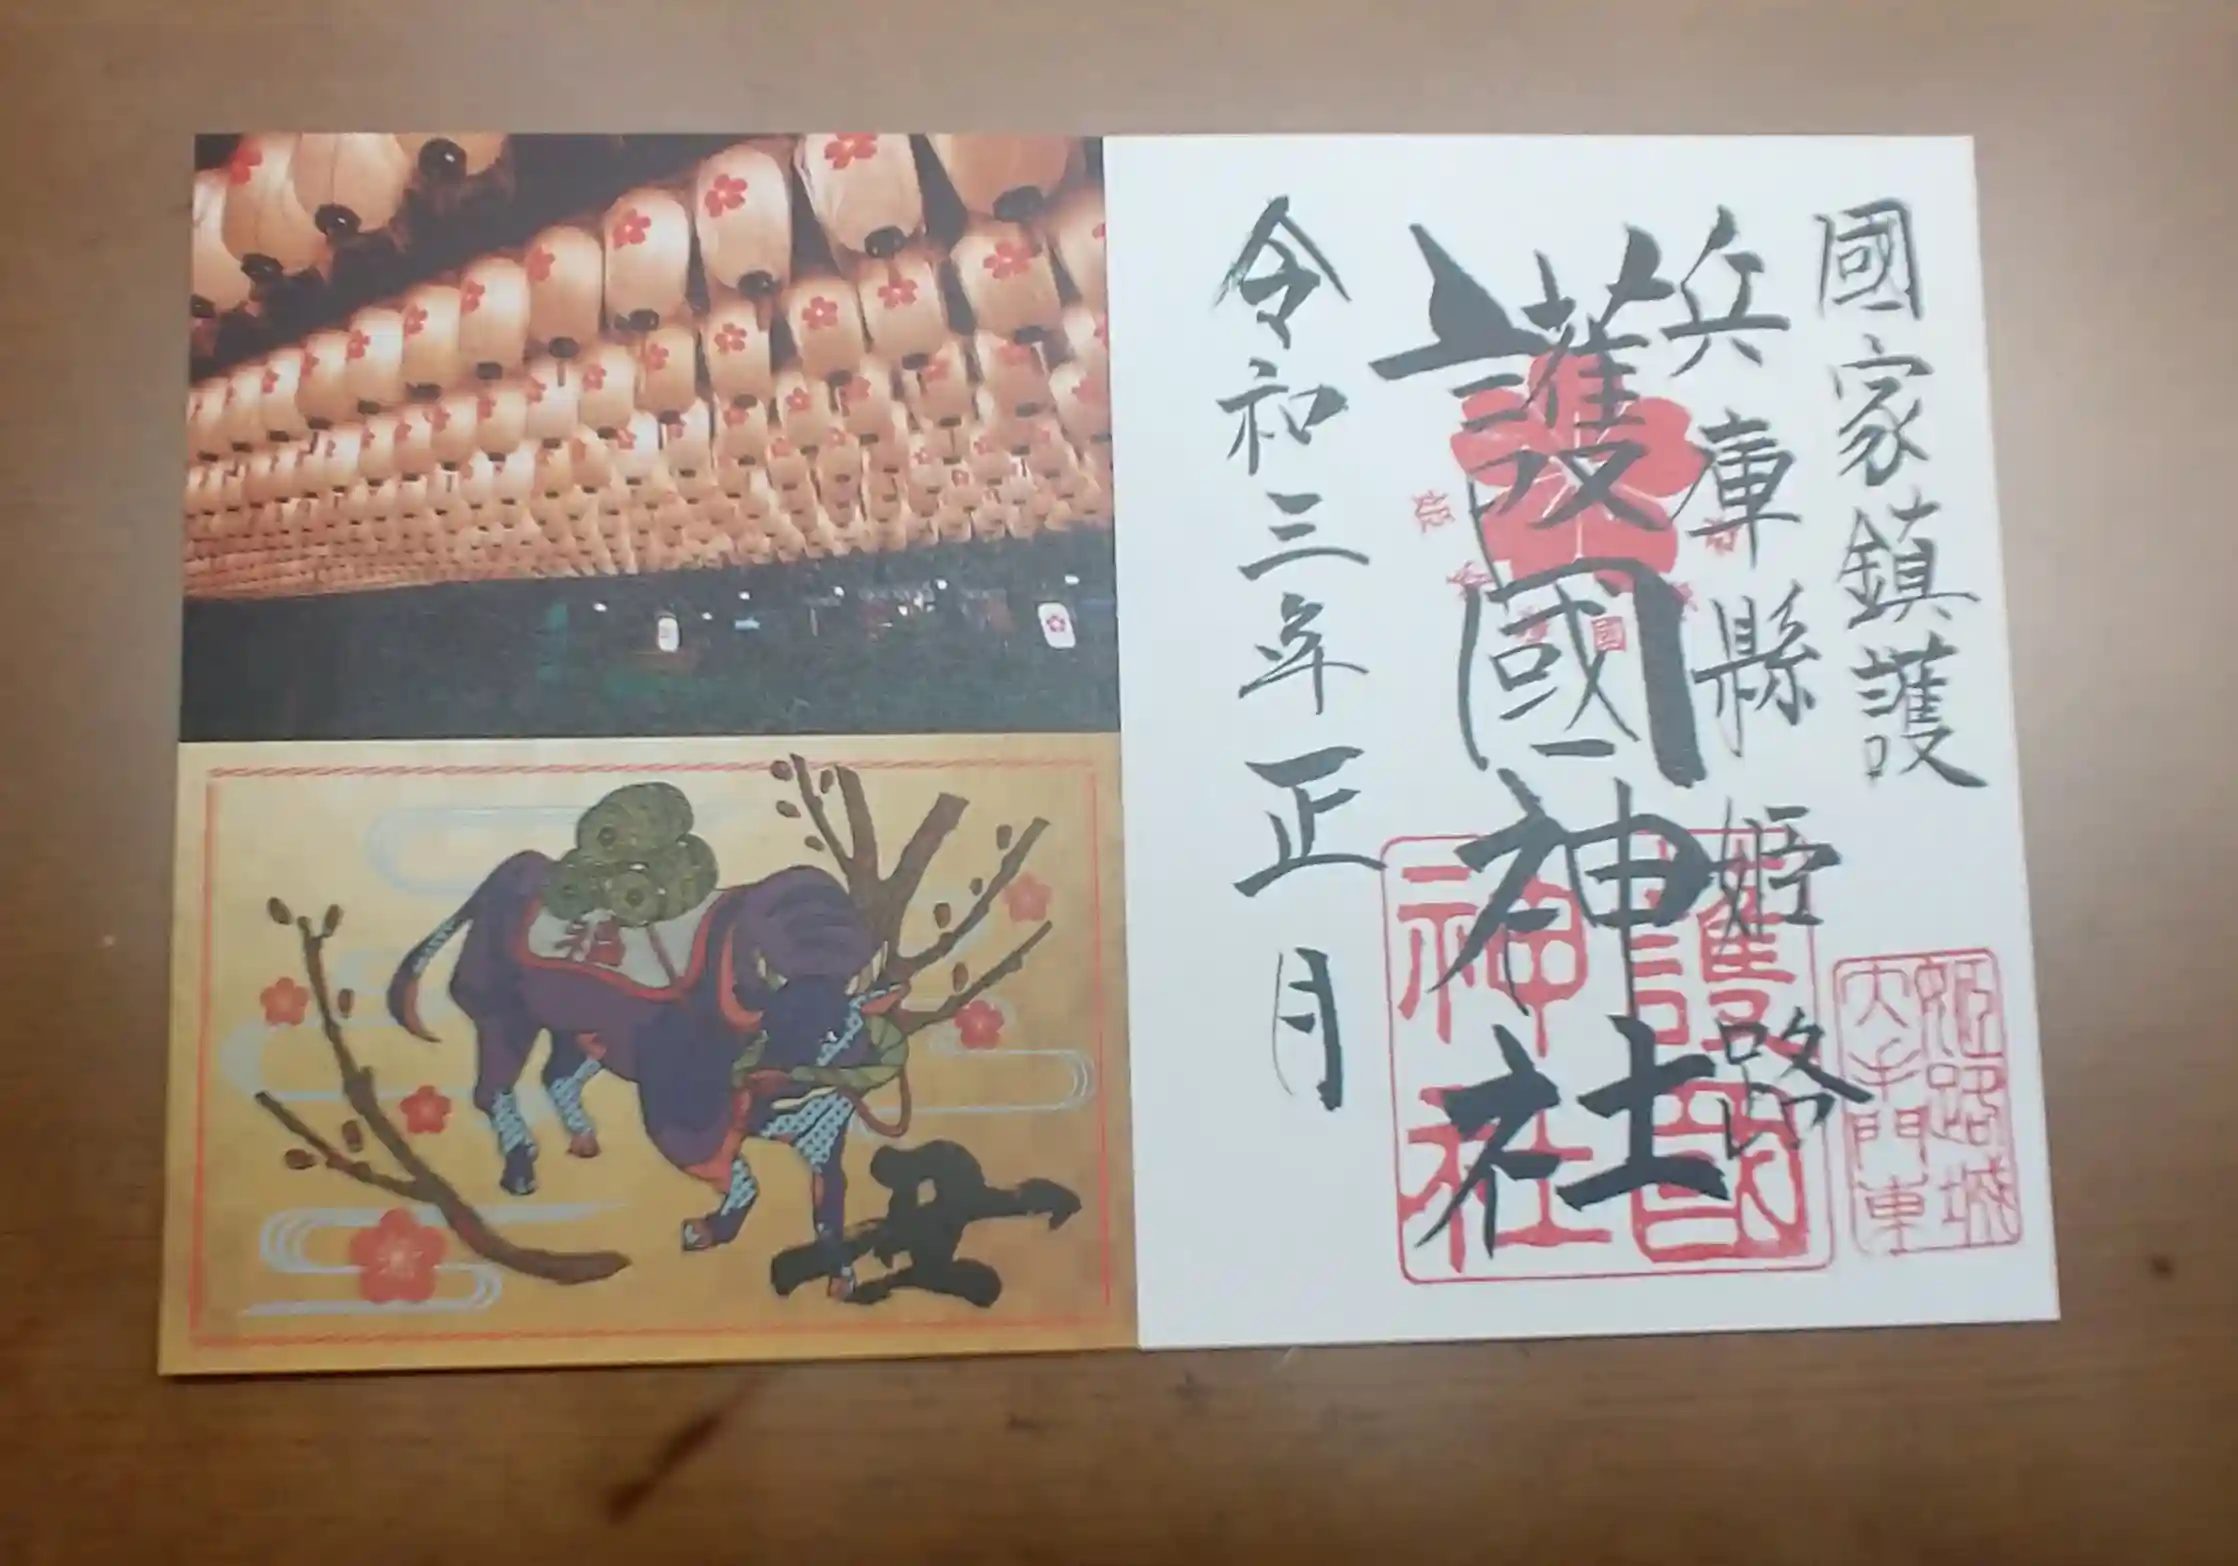 國家鎮護
兵庫縣姫路
護國神社
令和三年正月
護國
神社
姫路城
大手門東
福
丑